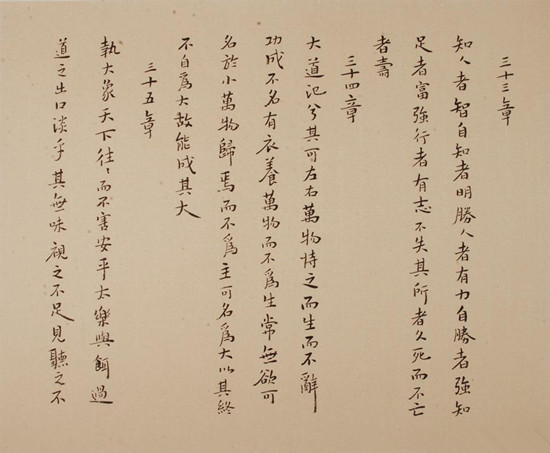 三十三章
知人者智自知者明勝人者有力自勝者強知
足者富強行者有志不失其所者久死而不亡
者壽
三十四章
大道氾兮其可左右萬物恃之而生而不辭
功成不名有衣養萬物而不爲生常無欲可
名於小萬物歸焉而不爲主可名爲大以其終
不自爲大故能成其大
三十五章
執大象天下往〻而不害安平太樂與餌過
道之出口淡乎其無味視之不足見聽之不